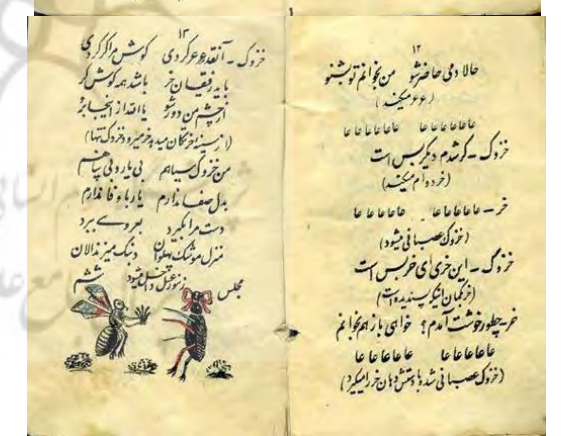 ۱۲
حالا دمی حاضر شو من بخوانم تو بشنو
(عرعر میکند)
عاعاعاعاعا عاعاعاعاعا
خزوک ـ کر شدم دیگر بس است
(خر دوام میکند)
خر ـ عاعاعاعاعا عاعاعاعاعا
(خزوک عصبانی میشود)
خزوگ ـ این خری ای خر بس است
(خر گمان پسندیده است)
خر ـ چطور خوشت آمدم؟ خواهی باز هم بخوانم
عاعاعاعاعا عاعاعاعاعا
(خزوک عصبانی شده با دستش دهان خر را میگیرد)
۱۳
خزوک ـ آنقدر عرعر کردی گوش مرا کر کردی
باید رفیقان خر باشد همه گوش کر
از چشم من دور شو یاالله از اینجا برو
(از سینه خر تکان میدهد خر میرود خزوک تنها)
من خزوک سیاهم بی یار و بی پناهم
بدل صفا ندارم یار با وفا ندارم
دست مرا بگیرد بعروسی برد
منزل موشک پهلوان دنبک میزند الان
مجلس ششم
زنبور عسل داخل میشود